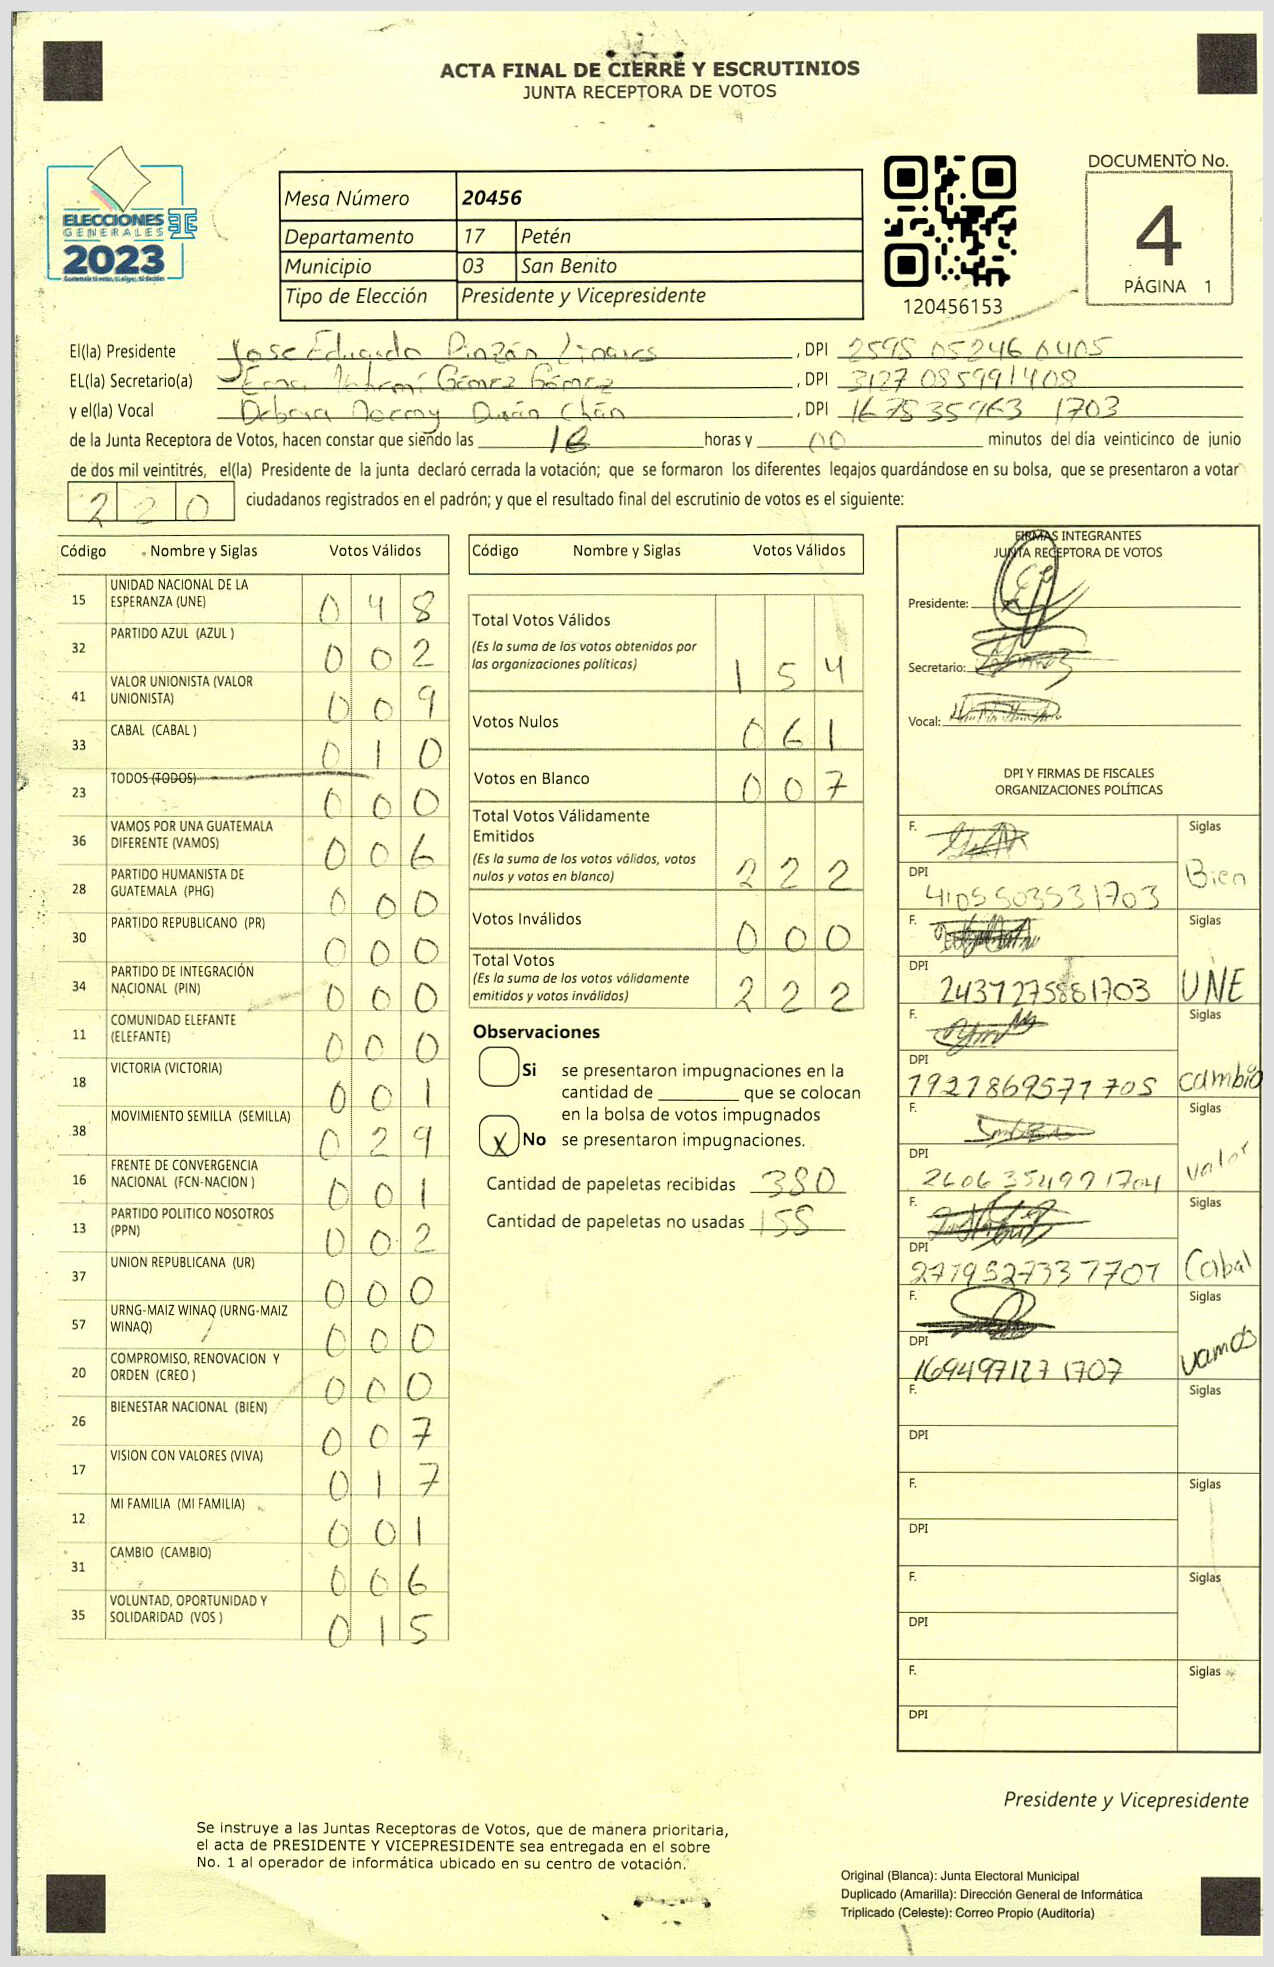 ACTA FINAL DE CIERRE Y ESCRUTINIOS
JUNTA RECEPTORA DE VOTOS
ELECCIONES
GENERALES
2023
Mesa Número 20456
Departamento 17 Petén
Municipio 03 San Benito
Tipo de Elección Presidente y Vicepresidente
120456153
DOCUMENTO No.
4
PÁGINA 1
El(la) Presidente Jose Eduardo Pinzán Linares , DPI 2595 05246 0405
EL(la) Secretario(a) Gómez Gómez , DPI 3127 08599 1408
y el(la) Vocal Debora Durán Chán , DPI 1703
de la Junta Receptora de Votos, hacen constar que siendo las horas y 00 minutos del día veinticinco de junio
de dos mil veintitrés, el(la) Presidente de la junta declaró cerrada la votación; que se formaron los diferentes legajos guardándose en su bolsa, que se presentaron a votar
220 ciudadanos registrados en el padrón; y que el resultado final del escrutinio de votos es el siguiente:
Código Nombre y Siglas Votos Válidos
15 UNIDAD NACIONAL DE LA ESPERANZA (UNE) 048
32 PARTIDO AZUL (AZUL ) 002
41 VALOR UNIONISTA (VALOR UNIONISTA) 009
33 CABAL (CABAL ) 010
23 TODOS (TODOS) 000
36 VAMOS POR UNA GUATEMALA DIFERENTE (VAMOS) 006
28 PARTIDO HUMANISTA DE GUATEMALA (PHG) 000
30 PARTIDO REPUBLICANO (PR) 000
34 PARTIDO DE INTEGRACIÓN NACIONAL (PIN) 000
11 COMUNIDAD ELEFANTE (ELEFANTE) 000
18 VICTORIA (VICTORIA) 001
38 MOVIMIENTO SEMILLA (SEMILLA) 029
16 FRENTE DE CONVERGENCIA NACIONAL (FCN-NACION ) 001
13 PARTIDO POLITICO NOSOTROS (PPN) 002
37 UNION REPUBLICANA (UR) 000
57 URNG-MAIZ WINAQ (URNG-MAIZ WINAQ) 000
20 COMPROMISO, RENOVACION Y ORDEN (CREO ) 000
26 BIENESTAR NACIONAL (BIEN) 007
17 VISION CON VALORES (VIVA) 017
12 MI FAMILIA (MI FAMILIA) 001
31 CAMBIO (CAMBIO) 006
35 VOLUNTAD, OPORTUNIDAD Y SOLIDARIDAD (VOS ) 015
Código Nombre y Siglas Votos Válidos
Total Votos Válidos
(Es la suma de los votos obtenidos por
las organizaciones políticas) 154
Votos Nulos 061
Votos en Blanco 007
Total Votos Válidamente
Emitidos
(Es la suma de los votos válidos, votos
nulos y votos en blanco) 222
Votos Inválidos 000
Total Votos
(Es la suma de los votos válidamente
emitidos y votos inválidos) 222
Observaciones
Si se presentaron impugnaciones en la
cantidad de ________ que se colocan
en la bolsa de votos impugnados
X No se presentaron impugnaciones.
Cantidad de papeletas recibidas 380
Cantidad de papeletas no usadas 158
FIRMAS INTEGRANTES
JUNTA RECEPTORA DE VOTOS
Presidente:
Secretario:
Vocal:
DPI Y FIRMAS DE FISCALES
ORGANIZACIONES POLÍTICAS
F. Siglas
DPI 4105503531703 Bien
F. Siglas
DPI 2437275881703 UNE
F. Siglas
DPI 1921869571705 cambio
F. Siglas
DPI 2606354991704 valor
F. Siglas
DPI 2719527331701 Cabal
F. Siglas
DPI 1694497127 1707 vamos
F. Siglas
DPI
F. Siglas
DPI
F. Siglas
DPI
F. Siglas
DPI
Presidente y Vicepresidente
Se instruye a las Juntas Receptoras de Votos, que de manera prioritaria,
el acta de PRESIDENTE Y VICEPRESIDENTE sea entregada en el sobre
No. 1 al operador de informática ubicado en su centro de votación.
Original (Blanca): Junta Electoral Municipal
Duplicado (Amarilla): Dirección General de Informática
Triplicado (Celeste): Correo Propio (Auditoría)